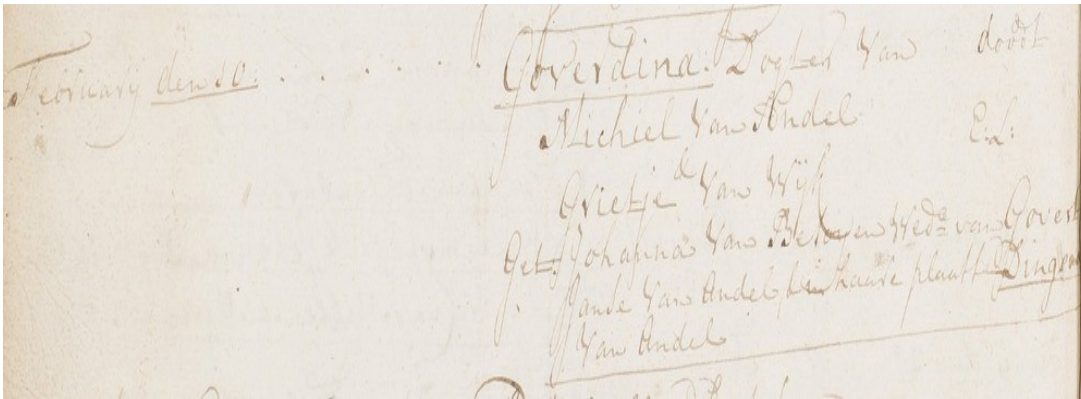 February den 10: . . . . . . Goverdina: Dogter van doodt
Michiel van Andel El:
Grietje van Wijk
Get: Johanna van Wede van Govert
Janse van Andel in haare plaatse Dingena
van Andel